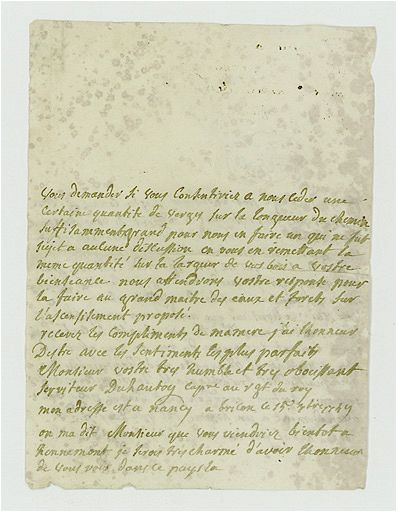 vous demander si vous Consentiriez a nous Ceder une
Certaine quantité de verges sur la Longueur du chemin
suffisamment grand pour nous en faire un qui ne fut
sujet a aucune discussion en vous en remettant la
meme quantité sur la largeur de vos bois a vostre
bienseance nous attendrons vostre reponse pour
la faire au grand maitre des eaux et forets sur
l'assensement proposé.
recevez les Compliments de ma mere j'ai lhonneur
Destre avec les sentiments les plus parfaits
Monsieur vostre tres humble et tres obeissant
serviteur Duhautoy Cap.ne au rgt du roy
mon adresse est a nancy a
on ma dit Monsieur que vous viendriez bientot a
hennemont je serois tres charmé d'avoir lhonneur
de vous voir dans ce pays la